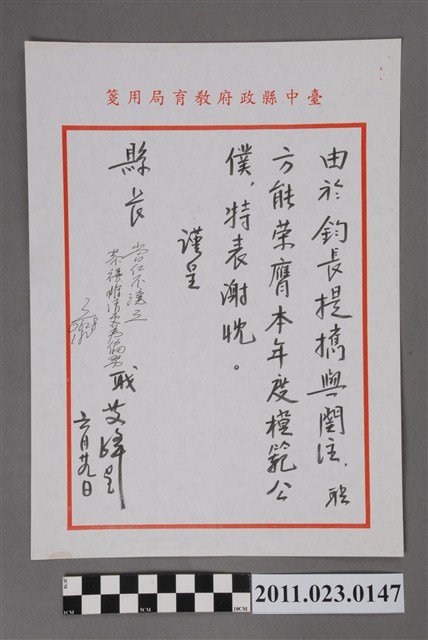 臺中縣政府教育局用箋
由於鈞長提攜與關注，職
方能榮膺本年度模範公
僕，特表謝忱。
謹呈
縣長
職
呈
六月廿九日
1CM
5CM
10CM
2011.023.0147